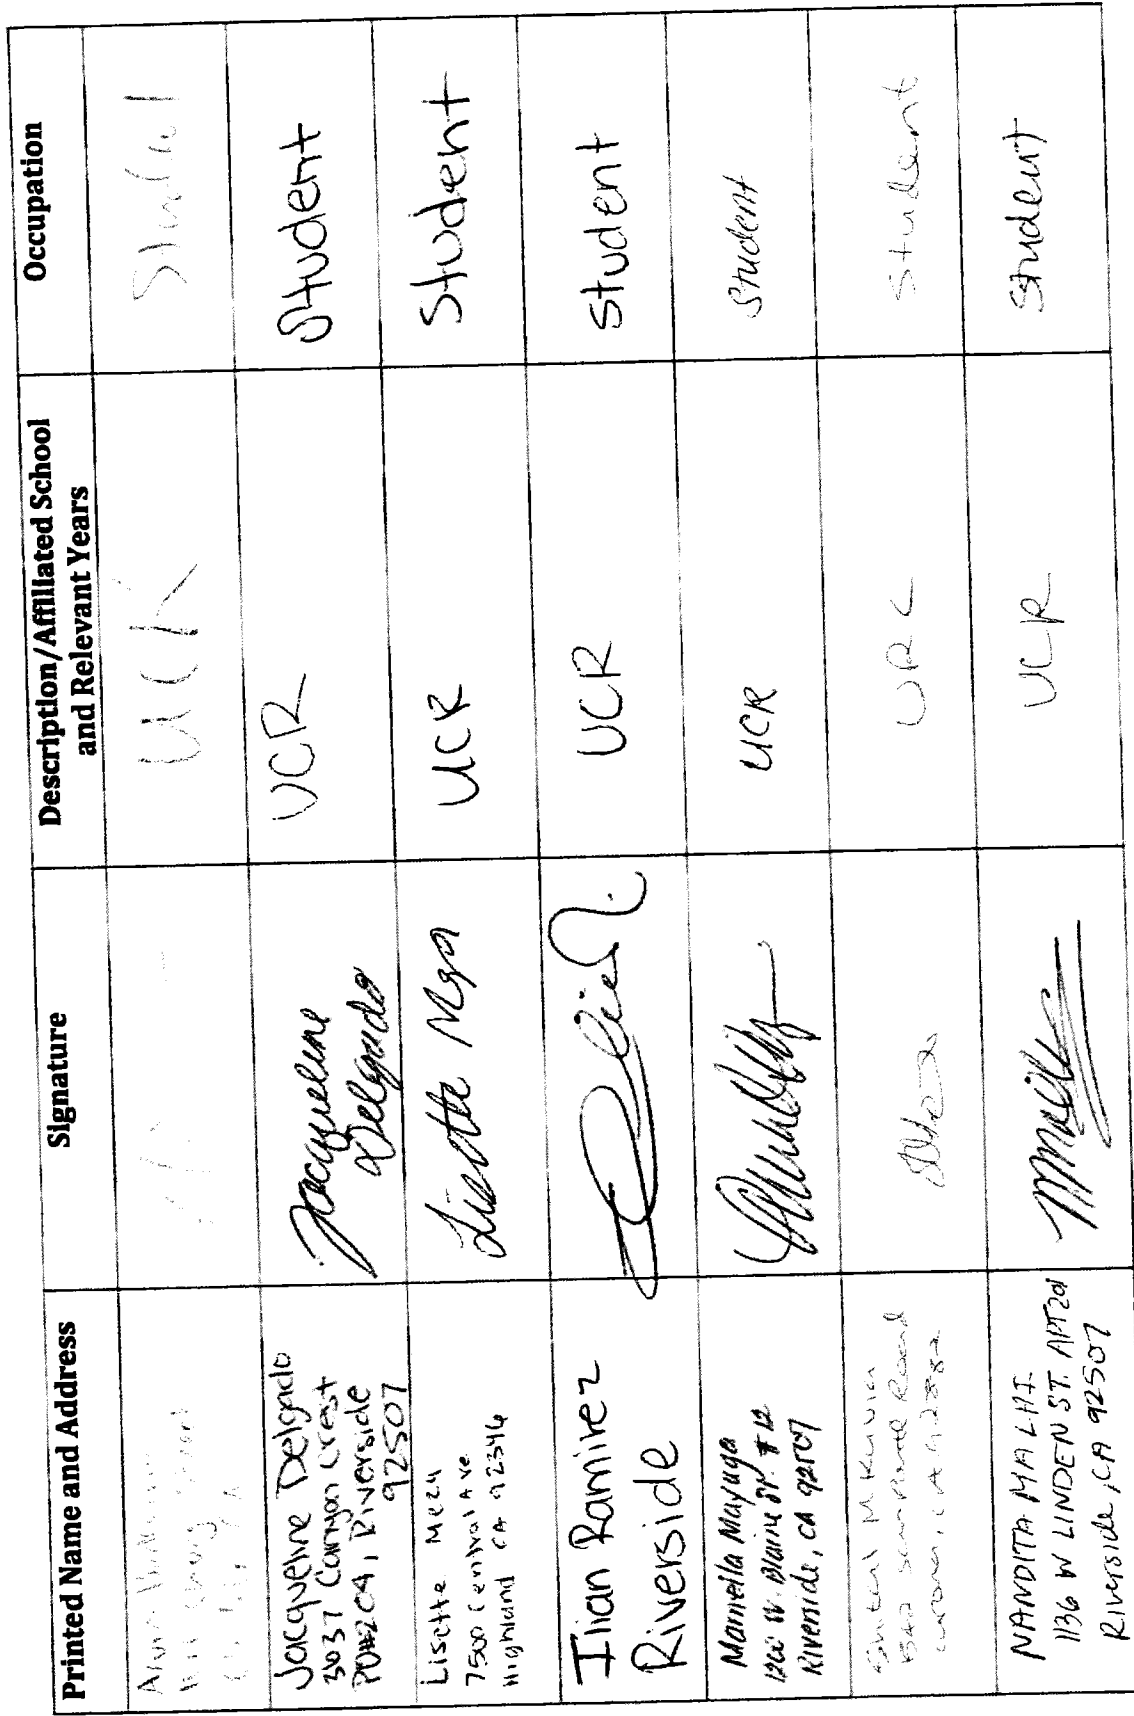 Printed Name and Address
Signature
Description/Affiliated School
and Relevant Years
Occupation
UCR
Student
Jacqueline Delgado
3037 Canyon Crest
Riverside
92507
Jacqueline
Delgado
UCR
Student
Lisette Meza
7500 Central Ave
Highland CA 92346
Lisette Meza
UCR
Student
Ilian Ramirez
Riverside
UCR
student
Mariella Mayuga
1200 W. Blaine St. #12
Riverside, CA 92507
UCR
Student
URC
Student
NANDITA MALHI
1136 W LINDEN ST. APT 201
Riverside, CA 92507
UCR
Student